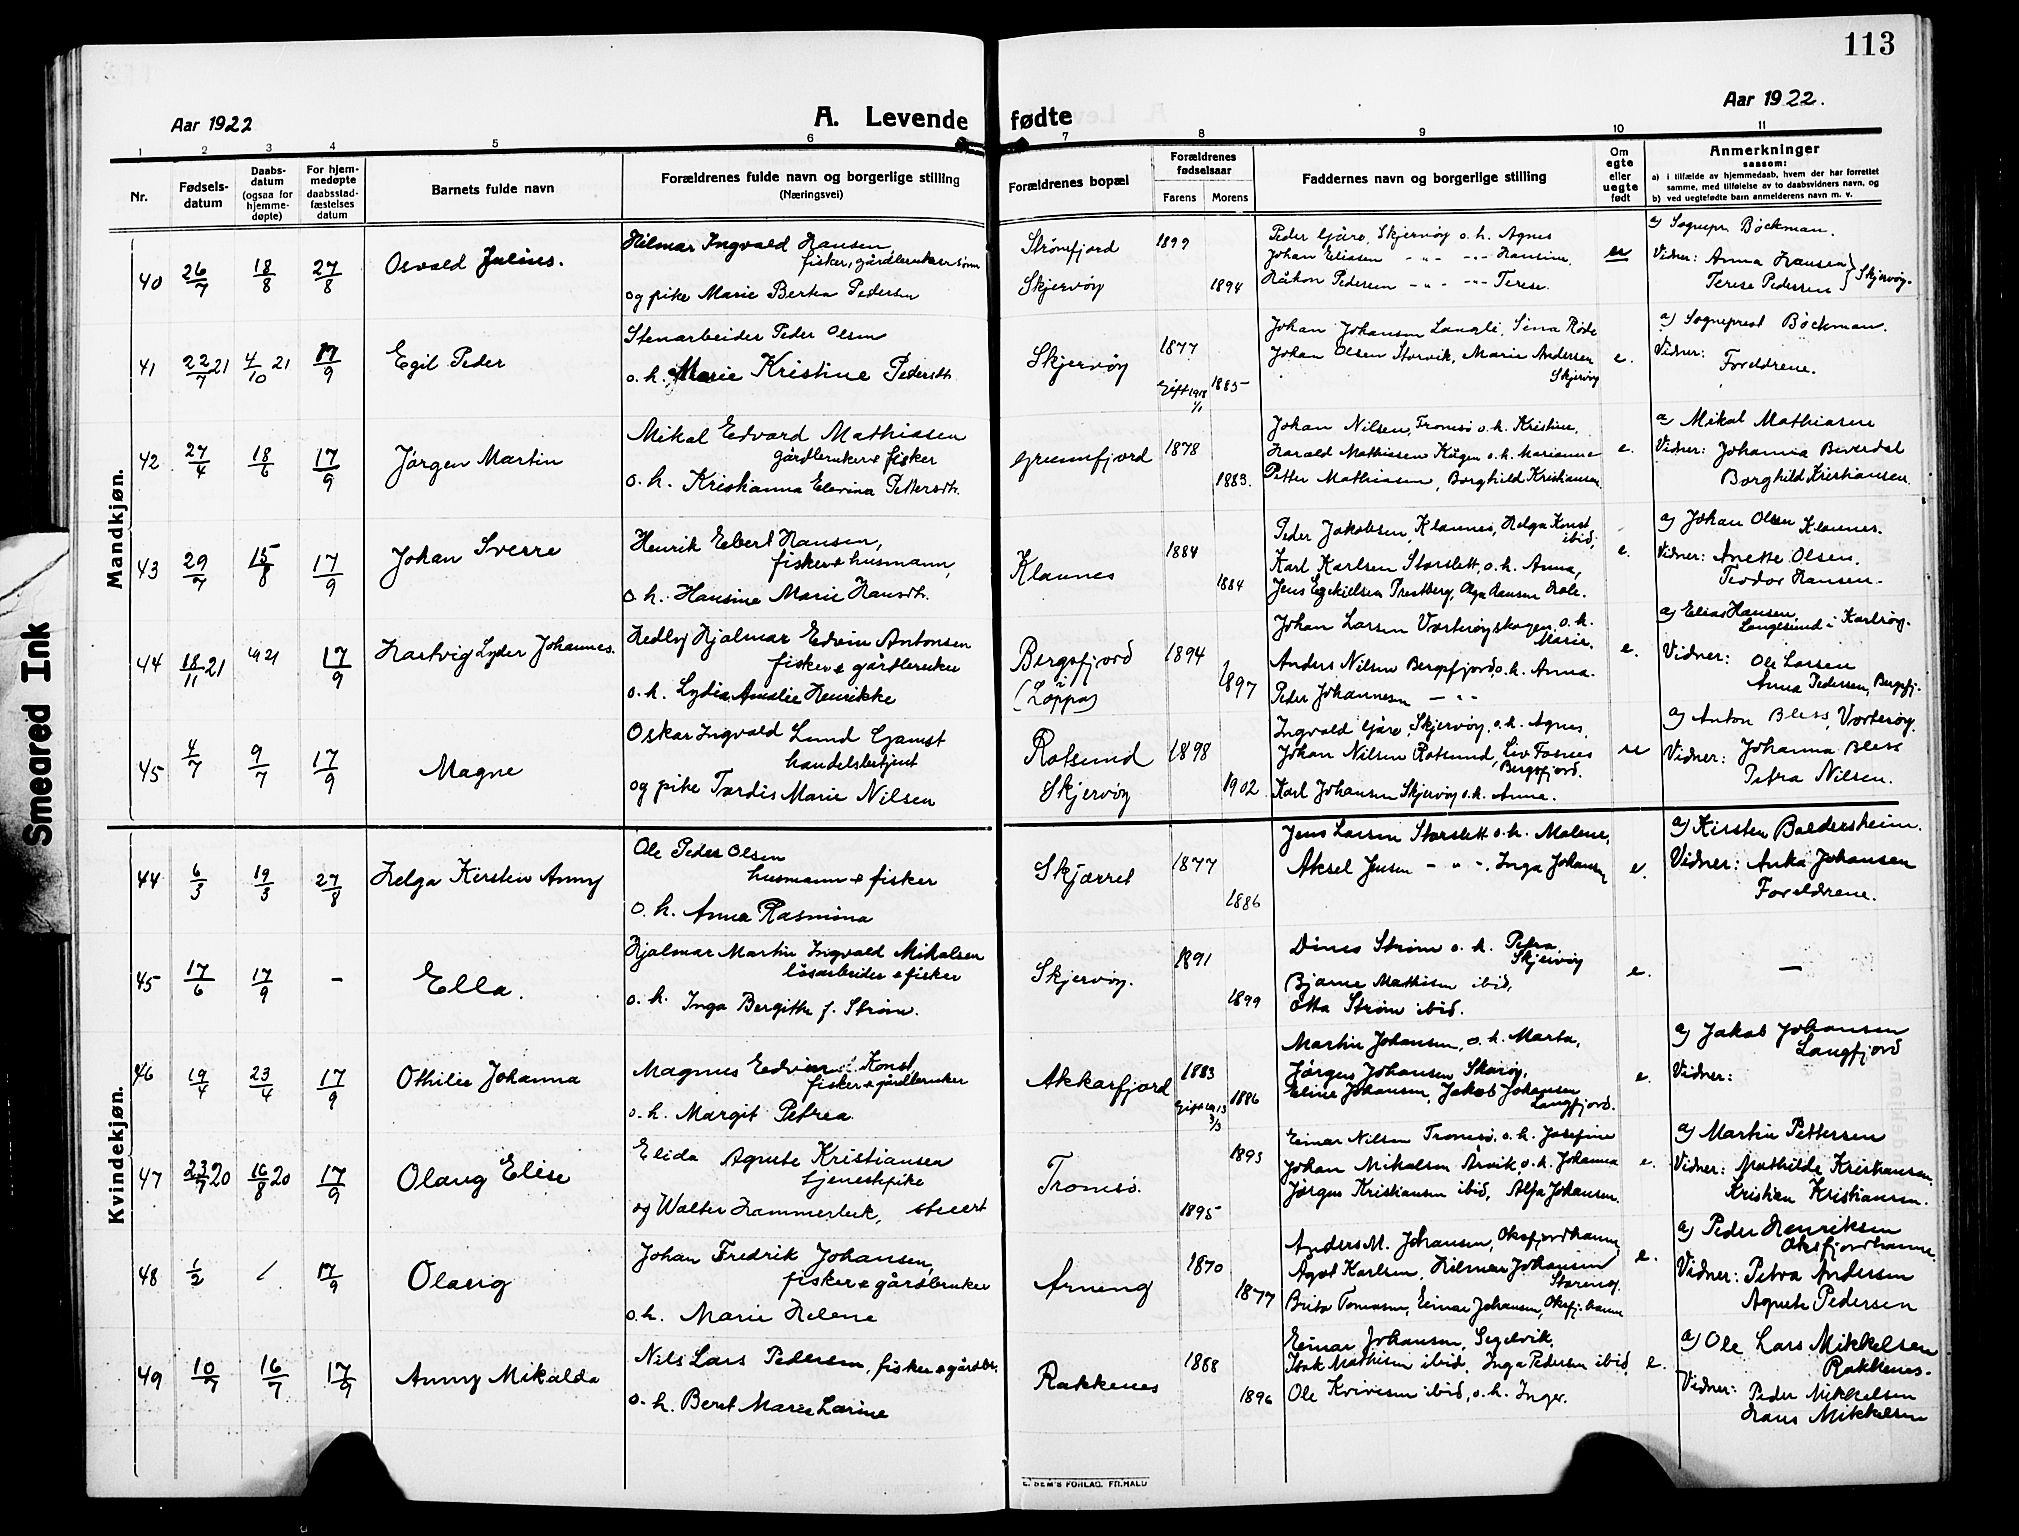 113
Aar 1922
A. Levende fødte
Aar 1922.
1 2 3 4 5 6 7 8 9 10 11
Nr.
Fødsels-
datum
Daabs-
datum
(ogsaa for
hjemme-
døpte)
For hjem-
medøpte
daabsstad-
fæstelses
datum
Barnets fulde navn
Forældrenes fulde navn og borgerlige stilling
(Næringsvei)
Forældrenes bopæl
Forældrenes
fødselsaar
Farens Morens
Faddernes navn og borgerlige stilling
Om
egte
eller
uegte
født
Anmerkninger
saasom:
a) i tilfælde av hjemmedaab, hvem der har forrettet
samme, med tilføielse av to daabsvidners navn, og
b) ved uegtefødte barn anmelderens navn m. v.
Mandkjøn.
40 26/7 18/8 27/8 Osvald Julius.
Hilmar Ingvald Hansen,
fisker, gårdbrukersønn
og pike Marie Berta Pedersen
Strømfjord
Skjervøy
1899
1894
Peder Gåre, Skjervøy o.h. Agnes
Johan Eliasen - " - - " - Hansine,
Håkon Pedersen - " - - " - Terese.
ue
a) Sognepr. Bøckman.
Vidner: Anna Hansen
Terese Pedersen } Skjervøy.
41 22/7 21 4/10 21 17/9 Egil Peder
Stenarbeider Peder Olsen
o.h. Marie Kristine Pedersdt.
Skjervøy
1877
Gift 1918
1885
Johan Johansen Langli, Sina Røde
Johan Olsen Storvik, Marie Andersen
Skjervøy
e.
a) Sogneprest Bøckman.
Vidner:
Foreldrene.
42 27/4 18/6 17/9 Jørgen Martin
Mikal Edvard Mathiasen
gårdbruker & fisker
o.h. Kristianna Elevina Pettersdt.
Grunnfjord
1878
1883.
Johan Nilsen, Tromsø o.h. Kristine,
Harald Mathiasen Kågen o.h. Marianne
Petter Mathiasen, Borghild Kristiansen
e.
a) Mikal Mathiasen
Vidner: Johanna Beverdal
Borghild Kristiansen.
43 29/7 15/8 17/9 Johan Sverre
Henrik Ebert Hansen,
fisker & husmann,
o.h. Hansine Marie Hansdt.
Klauvnes
1884
1884
Peder Jakobsen, Klauvnes, Helga Konst
ibid,
Karl Karlsen Storslett, o.h. Anna,
Jens Esekielsen Prestberg, Olga Hansen Hole.
e.
a) Johan Olsen Klauvnes.
Vidner: Anette Olsen.
Teodor Hansen.
44 18/11 21 21 17/9 Hartvig Lyder Johannes.
Hedley Hjalmar Edvin Antonsen
fisker & gårdbruker
o.h. Lydia Amalie Henrikke
Bergsfjord
i
(Loppa)
1894
1897
Johan Larsen Vorterøyskagen o.h.
Marie,
Anders Nilsen Bergsfjord o.h. Anna.
Peder Johannesen - " -
e.
a) Elias Hansen
Langesund i Karlsøy.
Vidner: Ole Larsen
Anna Pedersen, Bergsfj.
45 4/7 9/7 17/9 Magne
Oskar Ingvald Lund Gamst
handelsbetjent
og pike Tordis Marie Nilsen
Rotsund
Skjervøy
1898
1902.
Ingvald Gåre, Skjervøy, o.h. Agnes,
Johan Nilsen Rotsund, Liv Fosnes
Bergsfjord.
Karl Johansen Skjervøy o.h. Anna.
ue
a) Anton Bless, Vorterøy.
Vidner: Johanna Bless
Petra Nilsen.
Kvindekjøn.
44 6/3 19/3 27/8 Helga Kirsten Anny
Ole Peder Olsen
husmann & fisker
o.h. Anna Rasmina
Skjærvet
1877
1886
Jens Larsen Storslett o.h. Malene,
Aksel Jensen - " - ". Inga Johansen
e.
a) Kirsten Baldersheim.
Vidner: Anka Johansen
Foreldrene.
45 17/6 17/9 - Ella.
Hjalmar Martin Ingvald Mikalsen
løsarbeider & fisker
o.h. Inga Bergitte f. Strøm.
Skjervøy.
1891
1899
Dines Strøm o.h. Petra
Skjervøy
Bjarne Mathisen ibid,
Otta Strøm ibid.
e.
—
46 19/4 23/4 17/9 Othilie Johanna
Magnus Edvin Konst,
fisker & gårdbruker
o.h. Margit Petrea
Akkarfjord
1883
Gift 1913
3/3
1886
Martin Johansen, o.h. Marta,
Jørgen Johansen Skarøy,
Eline Johansen, Jakob Johansen
Langfjord.
e.
a) Jakob Johansen
Langfjord
Vidner:
47 23/7 20 16/8 20 17/9 Olaug Elise
Elida Agnete Kristiansen
tjenestpike
og Walter Hammerbeck, stuert
Tromsø.
1893
1895
Einar Nilsen Tromsø, o.h. Josefine
Johan Mikalsen Årvik, o.h. Johanna
Jørgen Kristiansen ibid, Alfa Johansen.
e.
a) Martin Pettersen
Vidner: Mathilde Kristiansen
Kristian Kristiansen.
48 1/2 / 17/9 Olaug
Johan Fredrik Johansen,
fisker & gårdbruker
o.h. Marie Helene
Arneng
1870
1877
Anders M. Johansen, Oksfjordhamn,
Agot Karlsen, Hilmar Johansen
Storeng.
Brita Tomasen, Einar Johansen, Oksfj.hamn
e.
a) Peder Henriksen
Oksfjordhamn
Vidner: Petra Andersen
Agnete Pedersen
49 10/7 16/7 17/9 Anny Mikalda
Nils Lars Pedersen, fisker & gårdbr.
o.h. Beret Marie Larine
Rakkenes
1888
1896
Einar Johansen, Segelvik,
Isak Mathisen ibid, Inga Pedersen ibid,
Ole Kvivesen ibid, o.h. Inger.
e.
a) Ole Lars Mikkelsen
Rakkenes.
Vidner: Peder Mikkelsen
Hans Mikkelsen
E. SEM'S FORLAG, FR.HALD
Smeared Ink